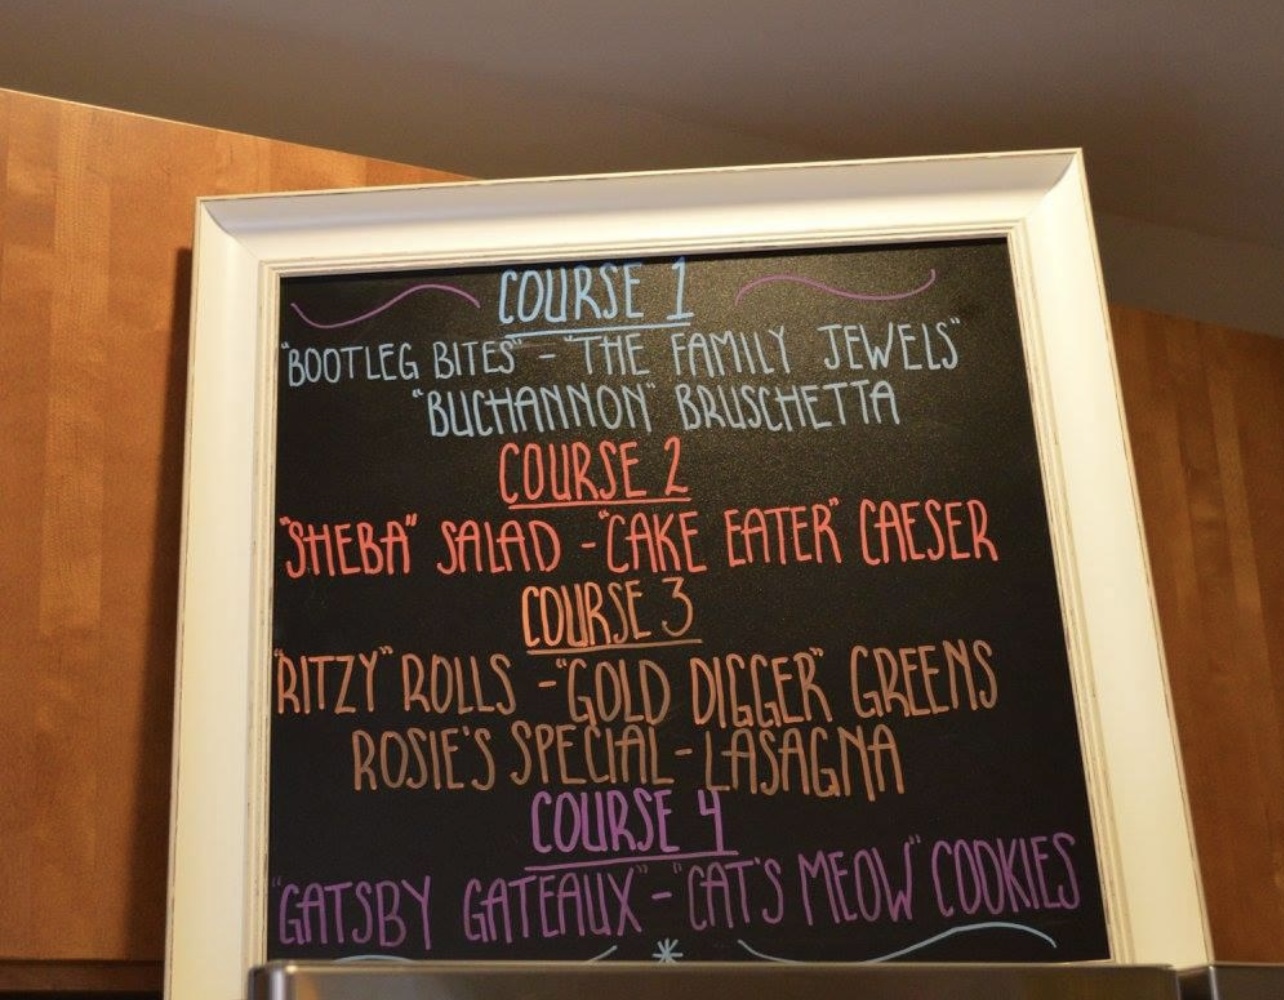 COURSE 1
"BOOTLEG BITES" - "THE FAMILY JEWELS"
"BUCHANNON" BRUSCHETTA
COURSE 2
"SHEBA" SALAD - "CAKE EATER" CAESER
COURSE 3
"RITZY" ROLLS - "GOLD DIGGER" GREENS
ROSIE'S SPECIAL - LASAGNA
COURSE 4
"GATSBY GATEAUX" - "CAT'S MEOW" COOKIES